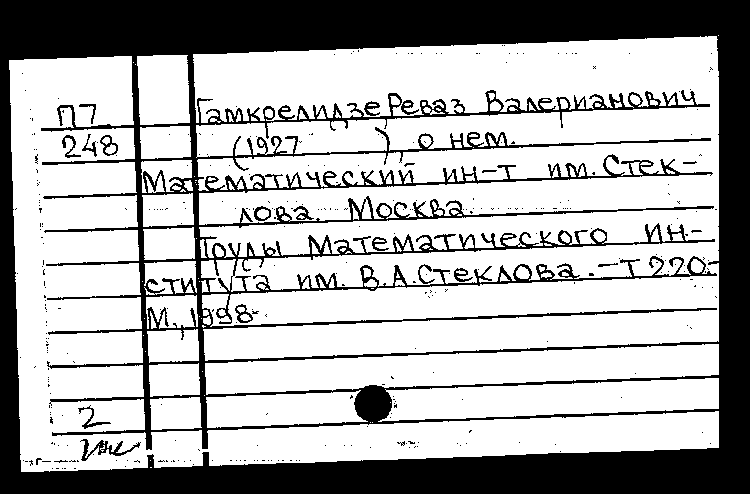 П7 Гамкрелидзе Реваз Валерианович
248 (1927 ), о нем.
Математический ин-т им. Стек-
лова. Москва.
Труды Математического ин-
ститута им. В.А.Стеклова. – Т 220.-
М., 1998-
2